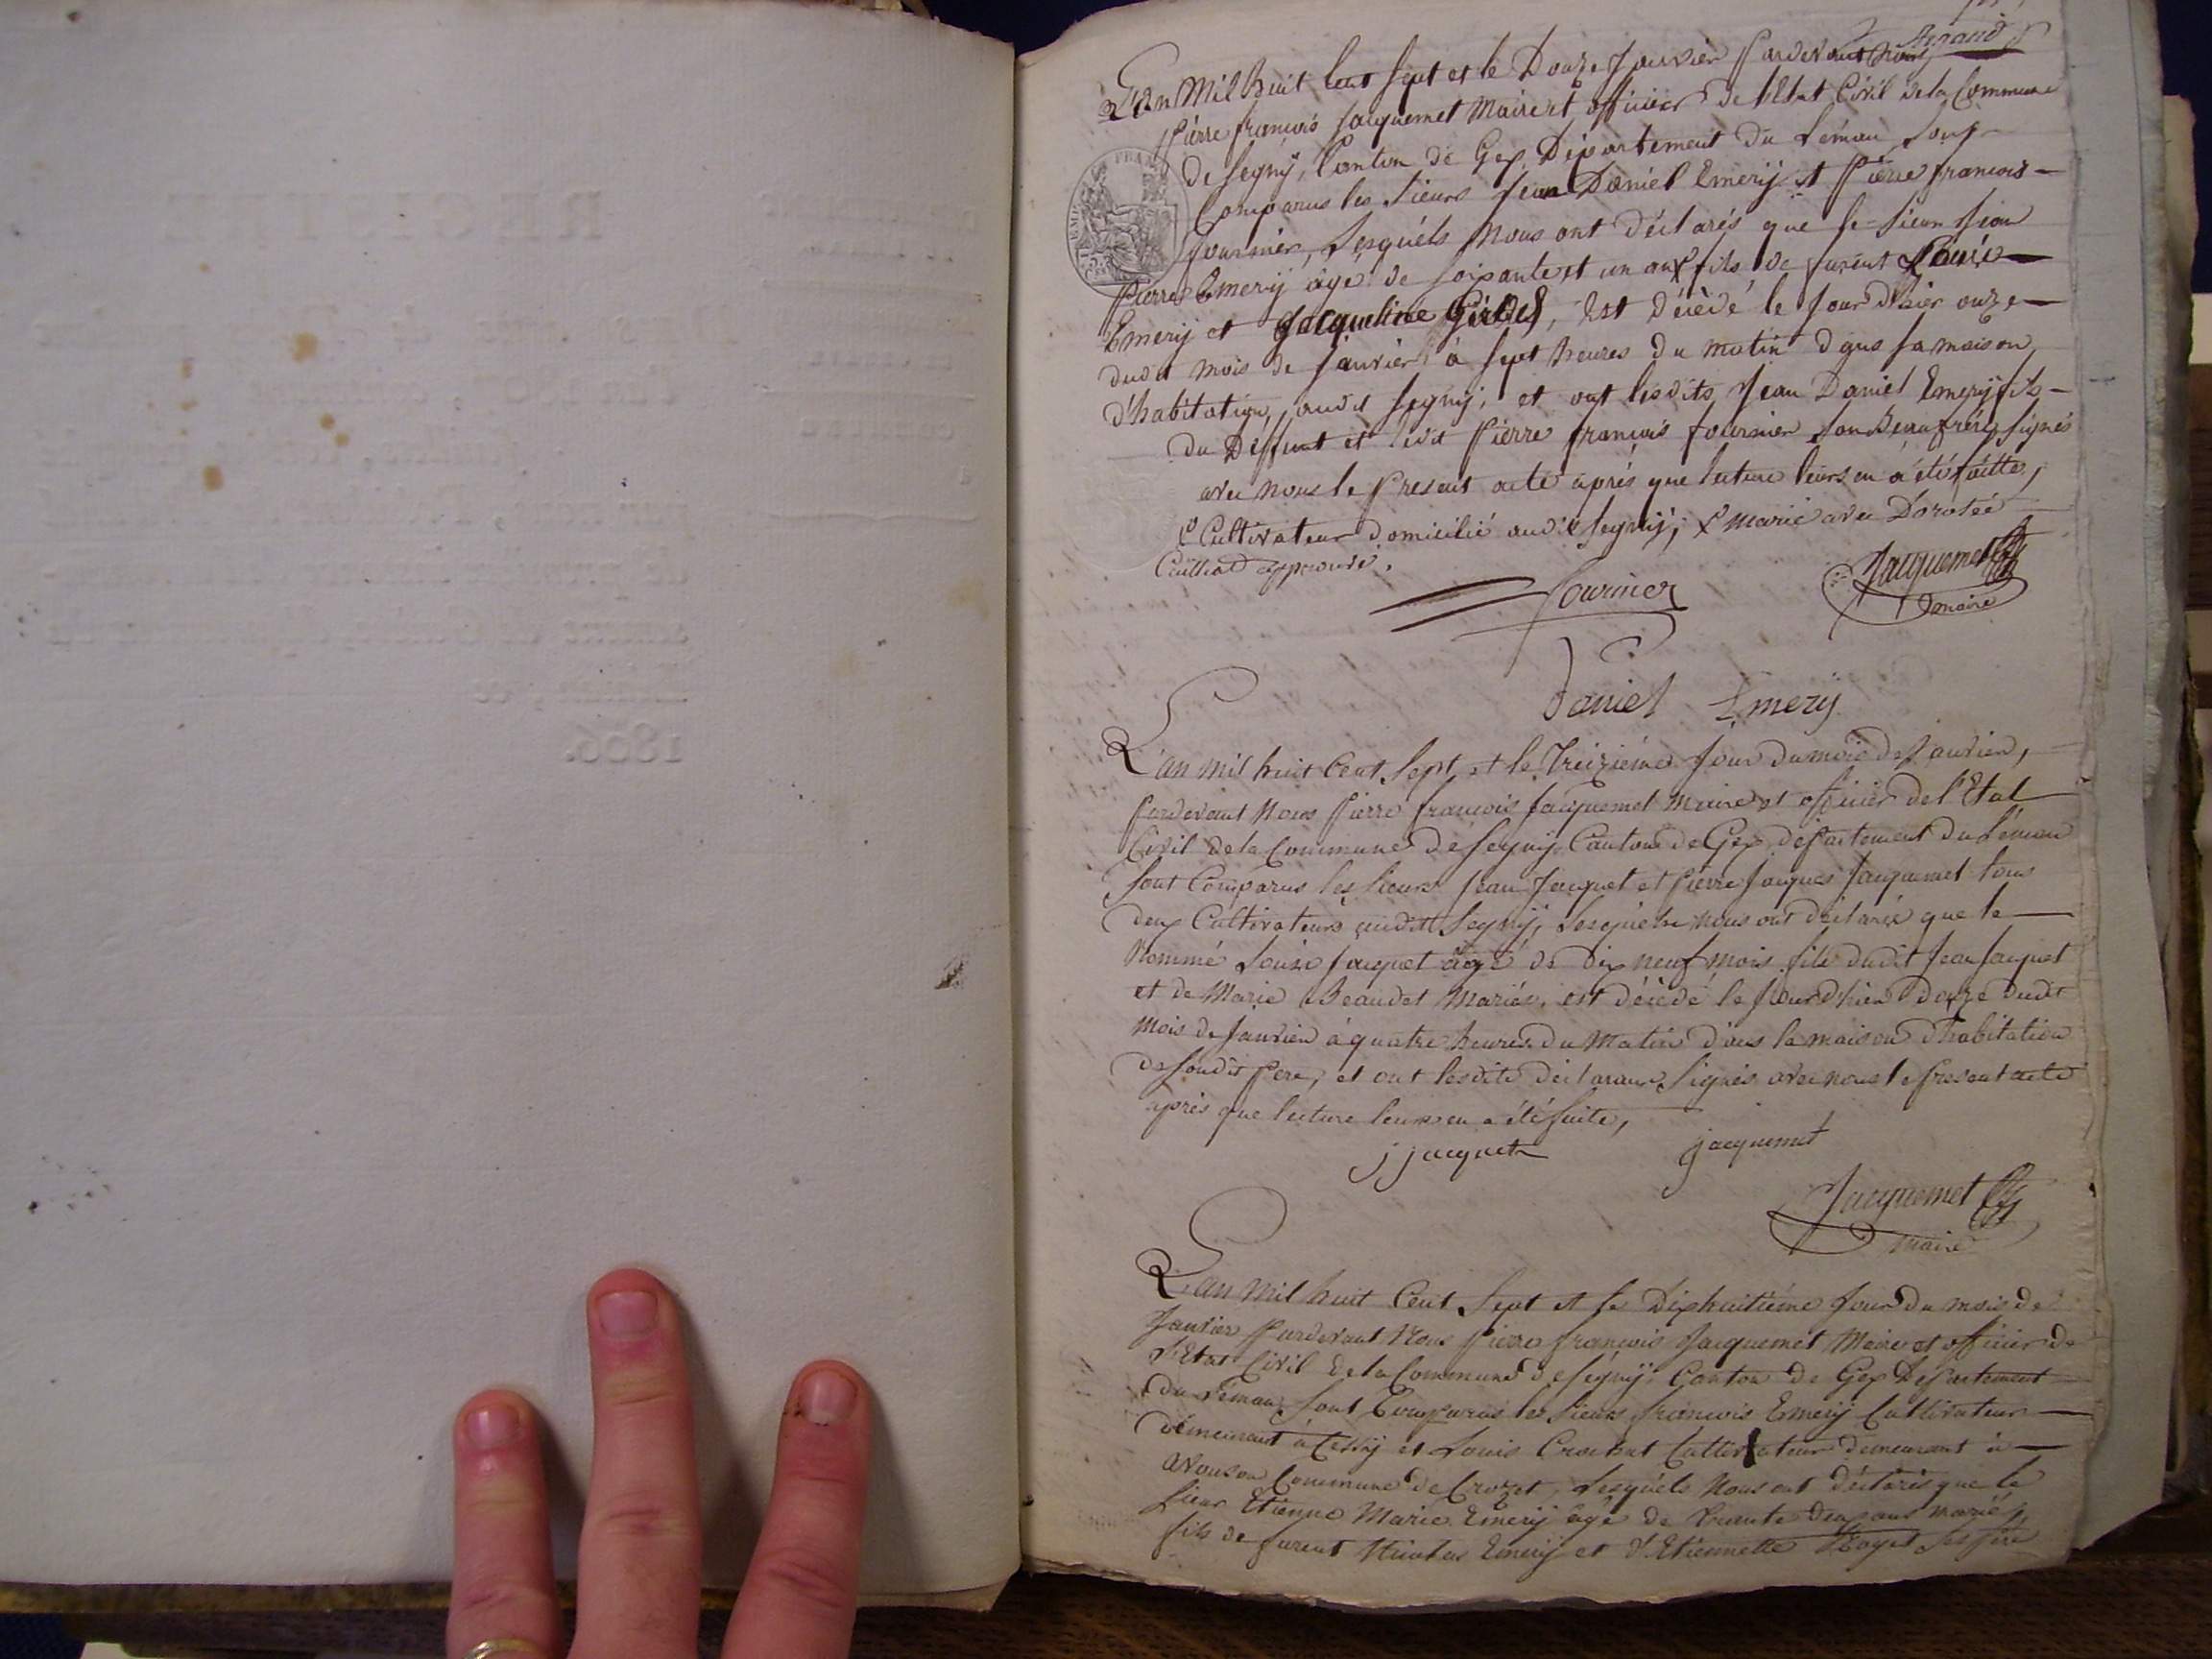 L'an Mil huit Cent Sept et le Douze Janvier Pardevant Nous
Pierre francois Jacquemet Maire et officier de l'Etat Civil de la Commune
de Segny, Canton de Gex Département du Léman Sont
Comparus les Sieurs Jean Daniel Emery et Pierre francois
fournier, Lesquels Nous ont Déclarés que le Sieur Jean
Pierre Emery âgé de soixante et un ans fils de furent Louis
Emery et Jacqueline, Est Décédé le Jour d'hier onze
dudit mois de Janvier à Sept heures du matin dans sa maison
d'habitation, audit Segny, et ont lesdits Jean Daniel Emery fils
du Deffunt et ledit Pierre francois fournier son Beaufrére, signés
avec nous le Present acte après que lecture leurs en a été faitte,
Cultivateur domicilié audit Segny, marié avec Dorotée
approuvé.
fournier
Jacquemet
maire
Daniel Emery
L'an mil huit Cent Sept et le Treiziéme Jour du mois de Janvier,
Pardevant Nous Pierre francois Jacquemet Maire et officier de l'Etat
Civil de la Commune de Segny Canton de Gex departement du Léman
Sont Comparus les Sieurs Jean Jacquet et Pierre Jacques Jacquemet tous
deux Cultivateurs audit Segny, Lesquels nous ont déclarés que le
Nommé Louis Jacquet âgé de Dix neuf mois fils dudit Jean Jacquet
et de Marie Beaudet Mariés, est décédé le Jour d'hier douze dudit
mois de Janvier à quatre heures du Matin dans la maison d'habitation
de sondit Pere, et ont lesdits déclarans Signés avec nous le present acte
après que lecture leurs en a été faite,
j jacquet
jacquemet
Jacquemet
maire
L'an Mil huit Cent Sept et le Dixhuitiéme Jour du mois de
Janvier Pardevant Nous Pierre francois Jacquemet Maire et officier de
l'Etat Civil de la Commune de Segny Canton de Gex Département
du Léman Sont Comparus les Sieurs francois Emery Cultivateur
demeurant à Cessy et Louis Crochat Cultivateur demeurant à
Avouson Commune de Crozet, Lesquels Nous ont déclarés que le
Sieur Etienne Marie Emery âgé de trente deux ans mariés,
fils de furent Nicolas Emery et d'Etiennette ses père